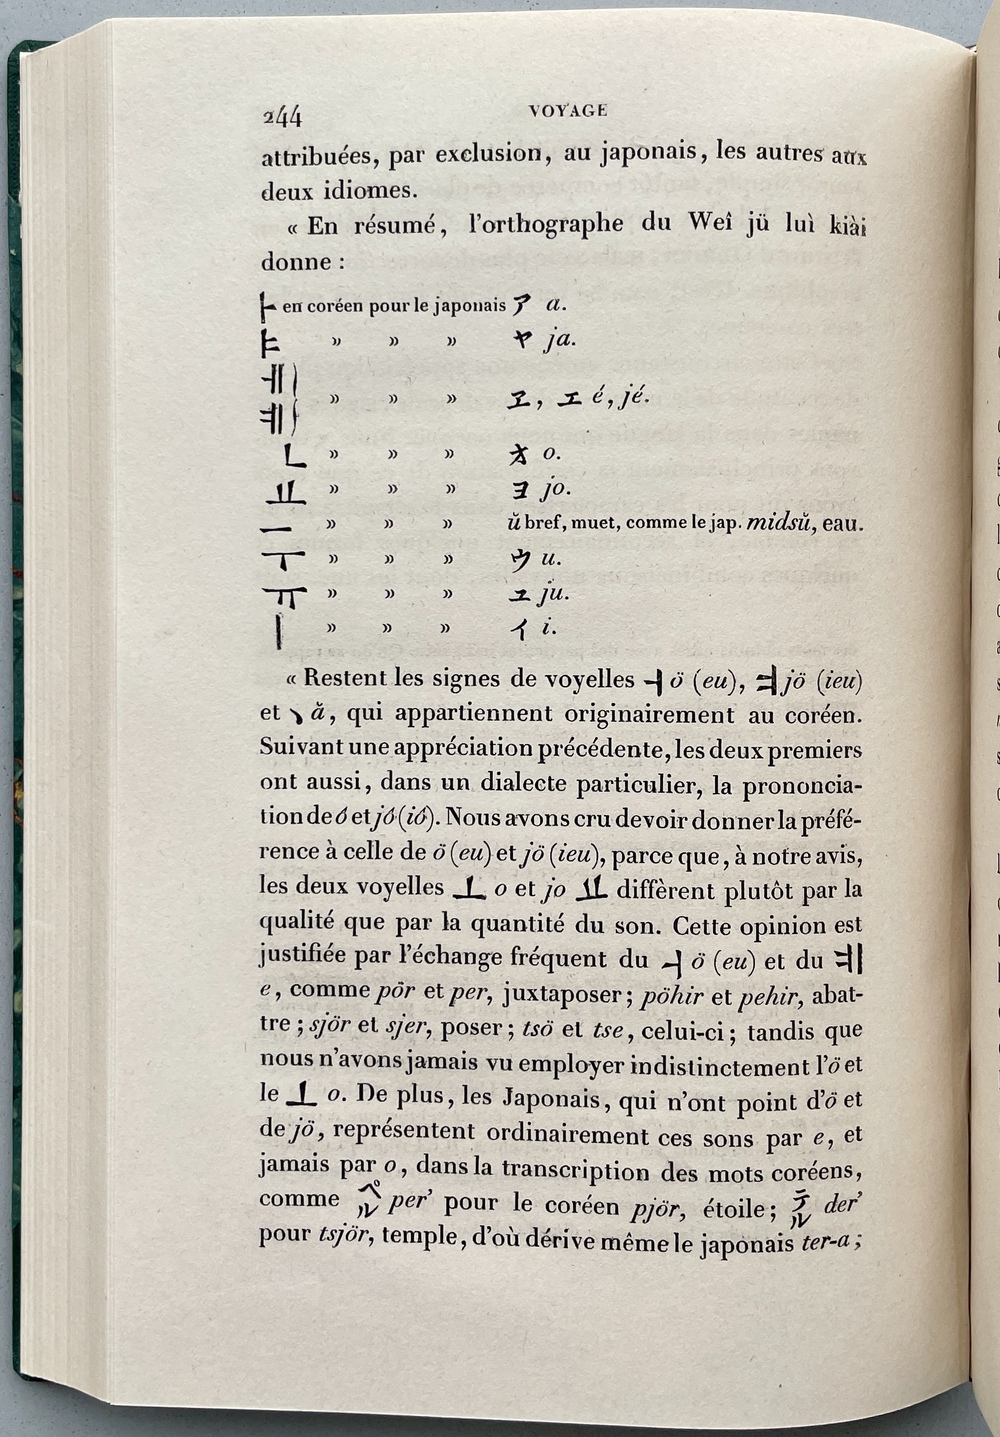 244
VOYAGE
attribuées, par exclusion, au japonais, les autres aux
deux idiomes.
« En résumé, l'orthographe du Weî jü luì kiài
donne :
ㅏ en coréen pour le japonais ア a.
ㅑ » » » ヤ ja.
ㅔ)
» » » ヱ, エ é, jé.
ㅖ)
ㄴ » » » オ o.
ㅛ » » » ヨ jo.
ㅡ » » » ŭ bref, muet, comme le jap. midsŭ, eau.
ㅜ » » » ウ u.
ㅠ » » » ユ ju.
ㅣ » » » イ i.
« Restent les signes de voyelles ㅓ ö (eu), ㅕ jö (ieu)
et ヽ ă, qui appartiennent originairement au coréen.
Suivant une appréciation précédente, les deux premiers
ont aussi, dans un dialecte particulier, la prononcia-
tion de ó et jó (ió). Nous avons cru devoir donner la préfé-
rence à celle de ö (eu) et jö (ieu), parce que, à notre avis,
les deux voyelles ㅗ o et jo ㅛ diffèrent plutôt par la
qualité que par la quantité du son. Cette opinion est
justifiée par l'échange fréquent du ㅓ ö (eu) et du ㅖ
e, comme pör et per, juxtaposer ; pöhir et pehir, abat-
tre ; sjör et sjer, poser ; tsö et tse, celui-ci ; tandis que
nous n'avons jamais vu employer indistinctement l'ö et
le ㅗ o. De plus, les Japonais, qui n'ont point d'ö et
de jö, représentent ordinairement ces sons par e, et
jamais par o, dans la transcription des mots coréens,
comme ペル per' pour le coréen pjör, étoile ; テル der'
pour tsjör, temple, d'où dérive même le japonais ter-a ;